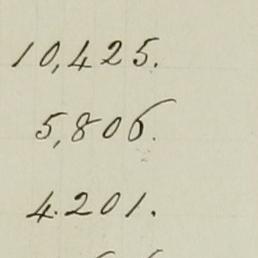 10,425.
5,806.
4.201.